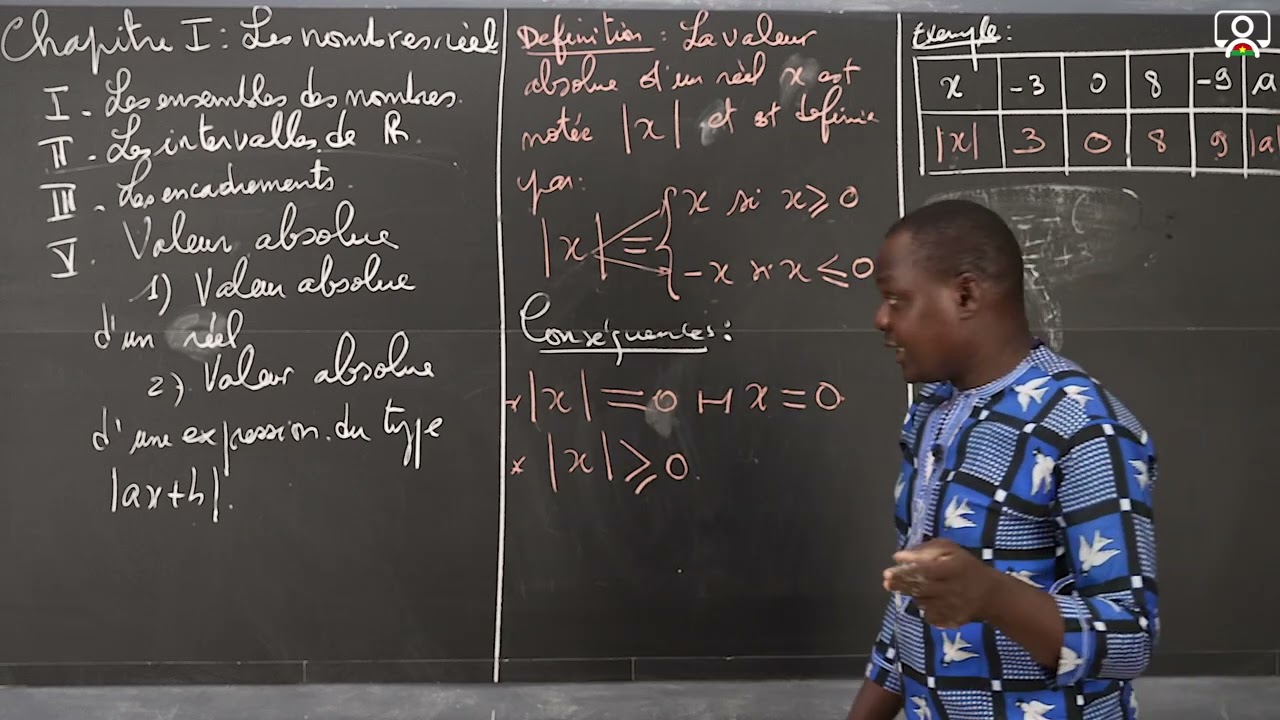 Chapitre I : Les nombres réel
I - Les ensembles des nombres.
II - Les intervalles de ℝ.
III - Les encadrements.
V. Valeur absolue
1) Valeur absolue
d'un réel
2) Valeur absolue
d'une expression du type
|ax+b|.
Definition : La valeur
absolue d'un réel x est
notée |x| et est definie
par:
|x| = { x si x ⩾ 0
-x si x ⩽ 0
Conséquences :
* |x| = 0 ↦ x = 0
* |x| ⩾ 0
Exemple :
x -3 0 8 -9 a
|x| 3 0 8 9 |a|